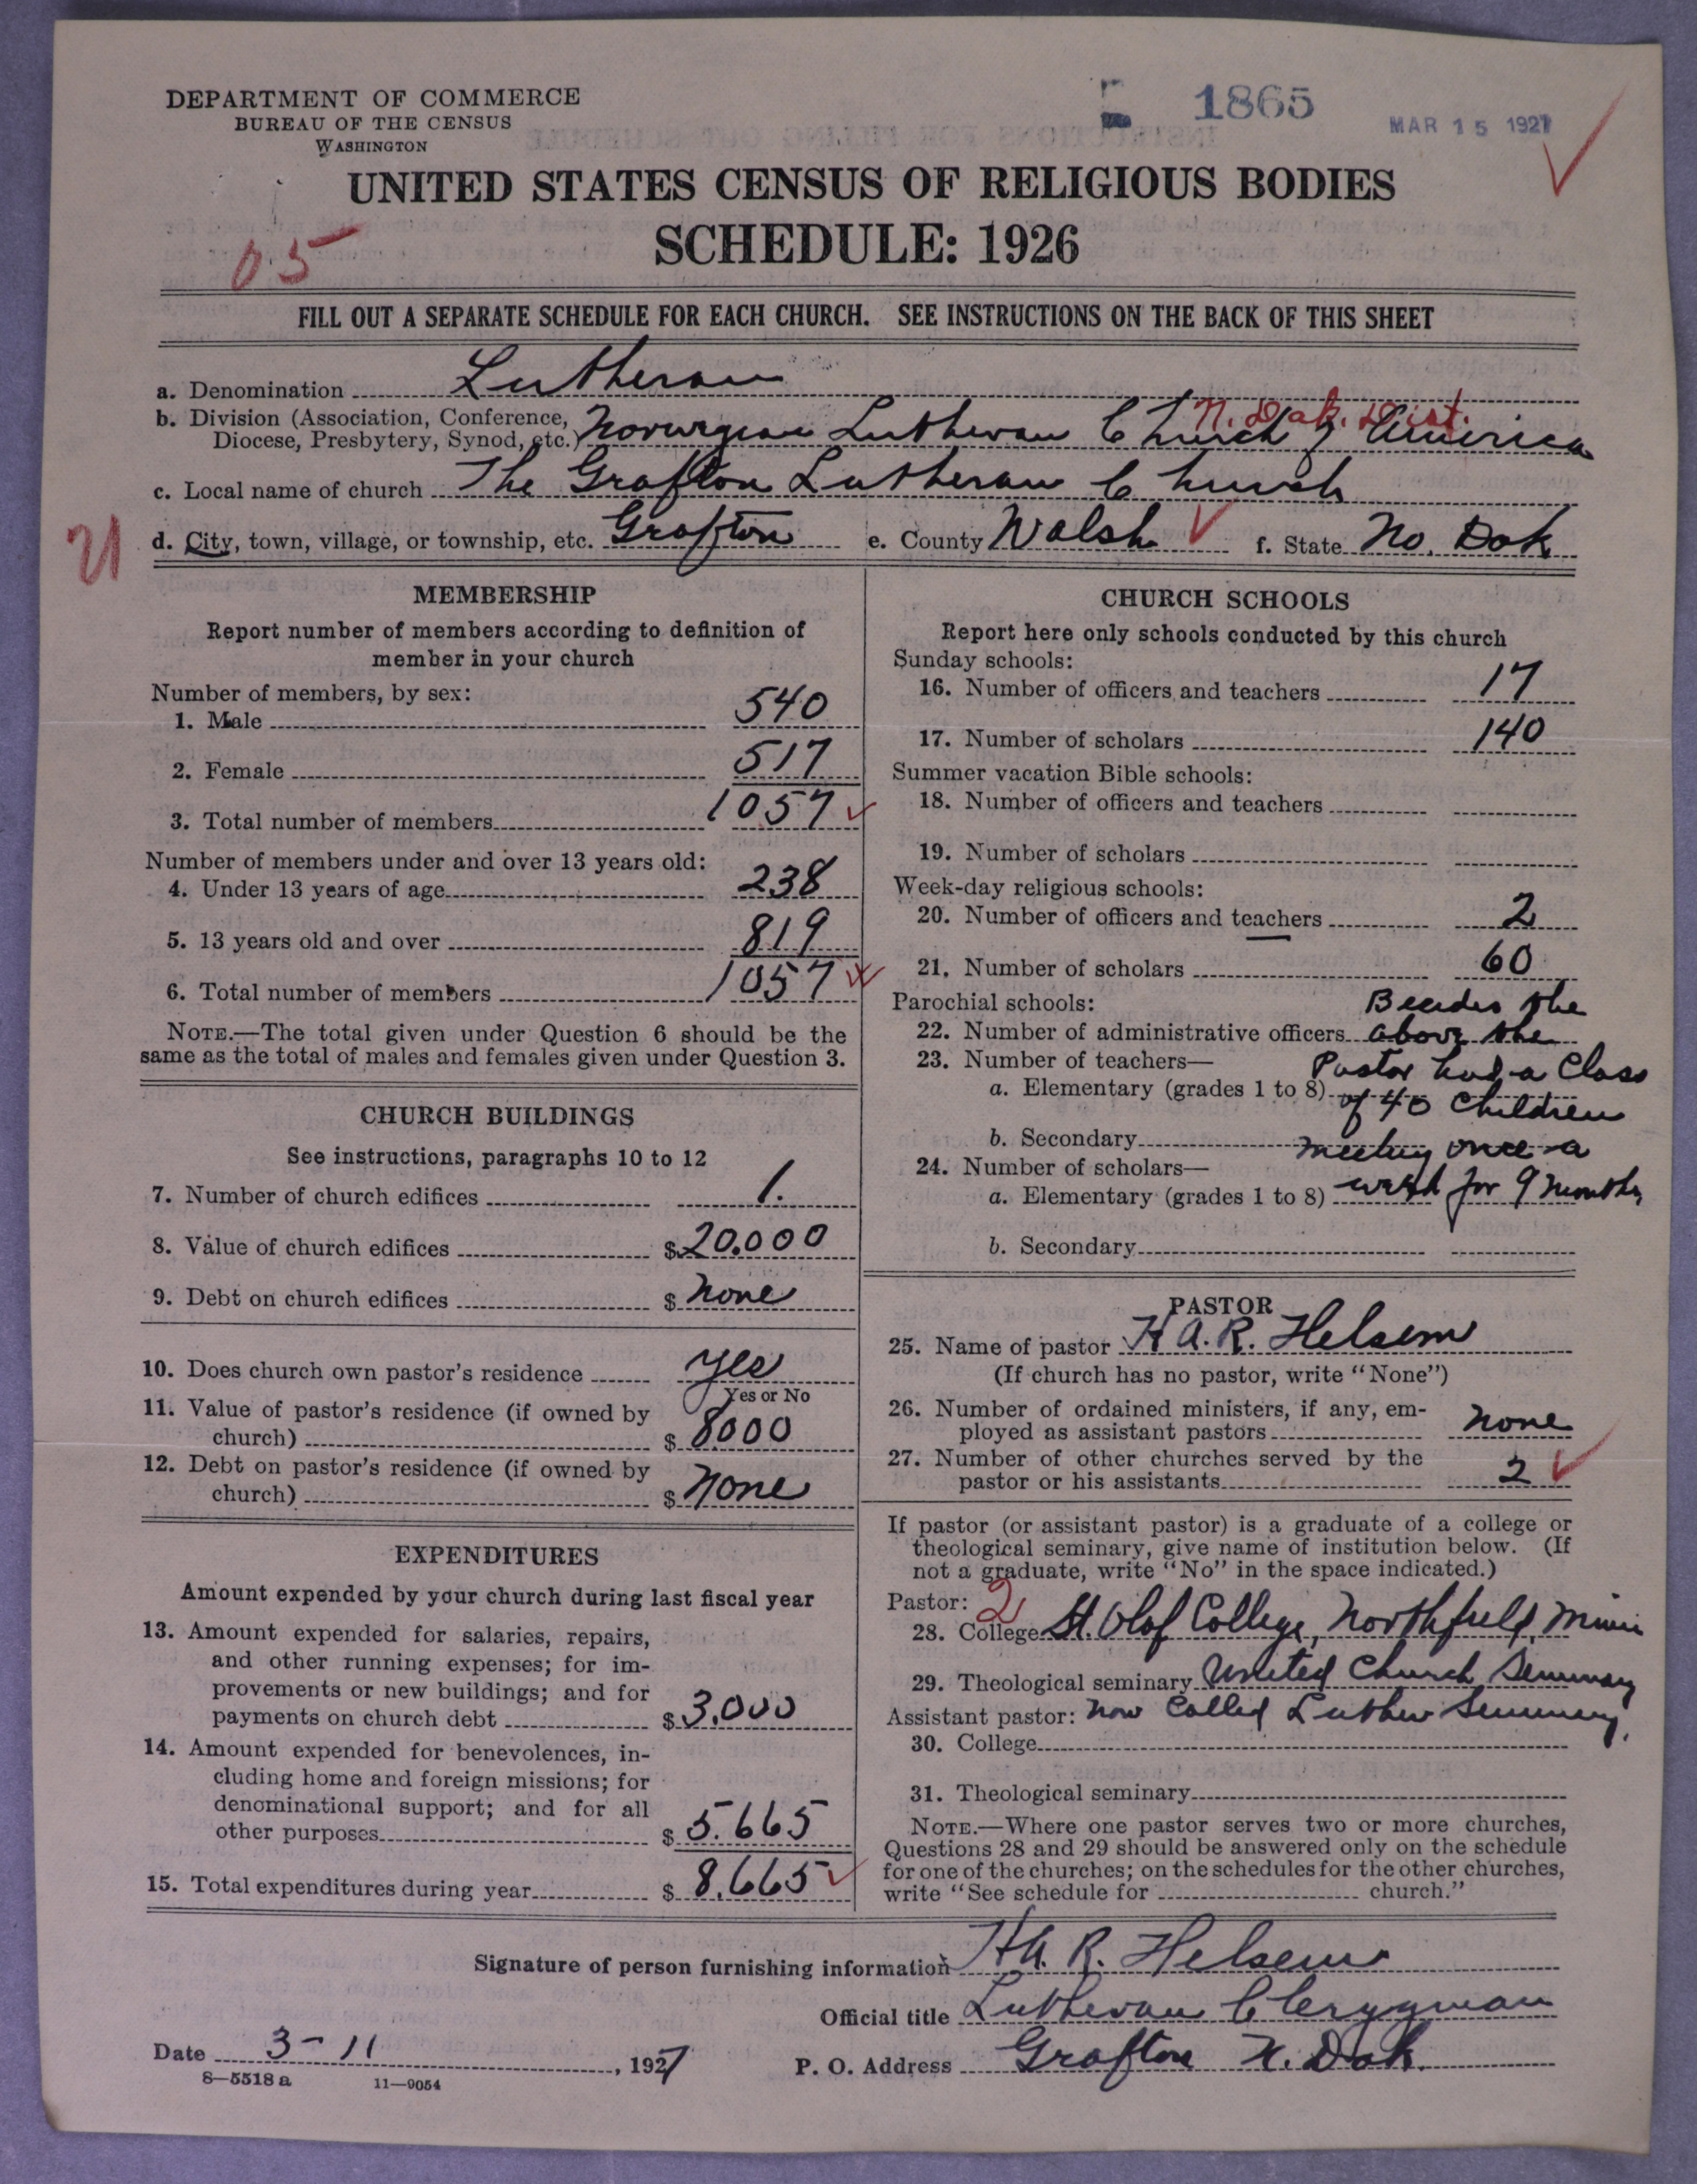 DEPARTMENT OF COMMERCE
BUREAU OF THE CENSUS
WASHINGTON
1865
MAR 15 1927
UNITED STATES CENSUS OF RELIGIOUS BODIES
SCHEDULE: 1926
05
FILL OUT A SEPARATE SCHEDULE FOR EACH CHURCH. SEE INSTRUCTIONS ON THE BACK OF THIS SHEET
a. Denomination Lutheran
N. Dak. Dist.
b. Division (Association, Conference,
Diocese, Presbytery, Synod, etc.) Norwegian Lutheran Church of America
c. Local name of church The Grafton Lutheran Church
d. City, town, village, or township, etc. Grafton e. County Walsh f. State No. Dak
MEMBERSHIP
Report number of members according to definition of
member in your church
Number of members, by sex:
1. Male 540
2. Female 517
3. Total number of members 1057
Number of members under and over 13 years old:
4. Under 13 years of age 238
5. 13 years old and over 819
6. Total number of members 1057
NOTE.—The total given under Question 6 should be the
same as the total of males and females given under Question 3.
CHURCH BUILDINGS
See instructions, paragraphs 10 to 12
7. Number of church edifices 1.
8. Value of church edifices $ 20.000
9. Debt on church edifices $ None
10. Does church own pastor's residence Yes
Yes or No
11. Value of pastor's residence (if owned by
church) $ 8000
12. Debt on pastor's residence (if owned by
church) $ None
EXPENDITURES
Amount expended by your church during last fiscal year
13. Amount expended for salaries, repairs,
and other running expenses; for im-
provements or new buildings; and for
payments on church debt $ 3,000
14. Amount expended for benevolences, in-
cluding home and foreign missions; for
denominational support; and for all
other purposes $ 5.665
15. Total expenditures during year $ 8,665
CHURCH SCHOOLS
Report here only schools conducted by this church
Sunday schools:
16. Number of officers and teachers 17
17. Number of scholars 140
Summer vacation Bible schools:
18. Number of officers and teachers
19. Number of scholars
Week-day religious schools:
20. Number of officers and teachers 2
21. Number of scholars 60
Parochial schools: Besides the
22. Number of administrative officers above the
23. Number of teachers— Pastor had a Class
a. Elementary (grades 1 to 8) of 40 Children
b. Secondary meeting once a
24. Number of scholars—
a. Elementary (grades 1 to 8) week for 9 months
b. Secondary
PASTOR
25. Name of pastor H A. R. Helsem
(If church has no pastor, write "None")
26. Number of ordained ministers, if any, em-
ployed as assistant pastors None
27. Number of other churches served by the
pastor or his assistants 2
If pastor (or assistant pastor) is a graduate of a college or
theological seminary, give name of institution below. (If
not a graduate, write "No" in the space indicated.)
Pastor: 2
28. College St. Olaf College, Northfield, Minn
29. Theological seminary United Church Seminary
Assistant pastor: now Called Luther Seminary.
30. College
31. Theological seminary
NOTE.—Where one pastor serves two or more churches,
Questions 28 and 29 should be answered only on the schedule
for one of the churches; on the schedules for the other churches,
write "See schedule for church."
Signature of person furnishing information H A. R. Helsem
Official title Lutheran Clergyman
Date 3-11, 1927 P. O. Address Grafton N. Dak.
8—5518 a 11—9054